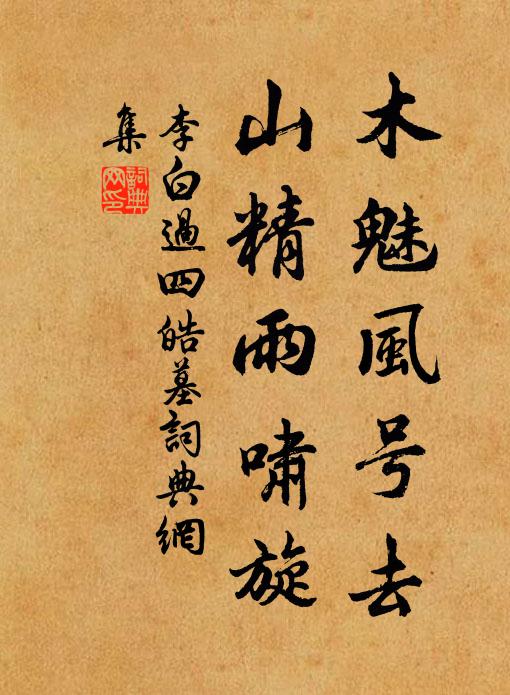 木魅風号去
山精雨嘯旋
李白過四皓墓詞典網
集
詞典
网印